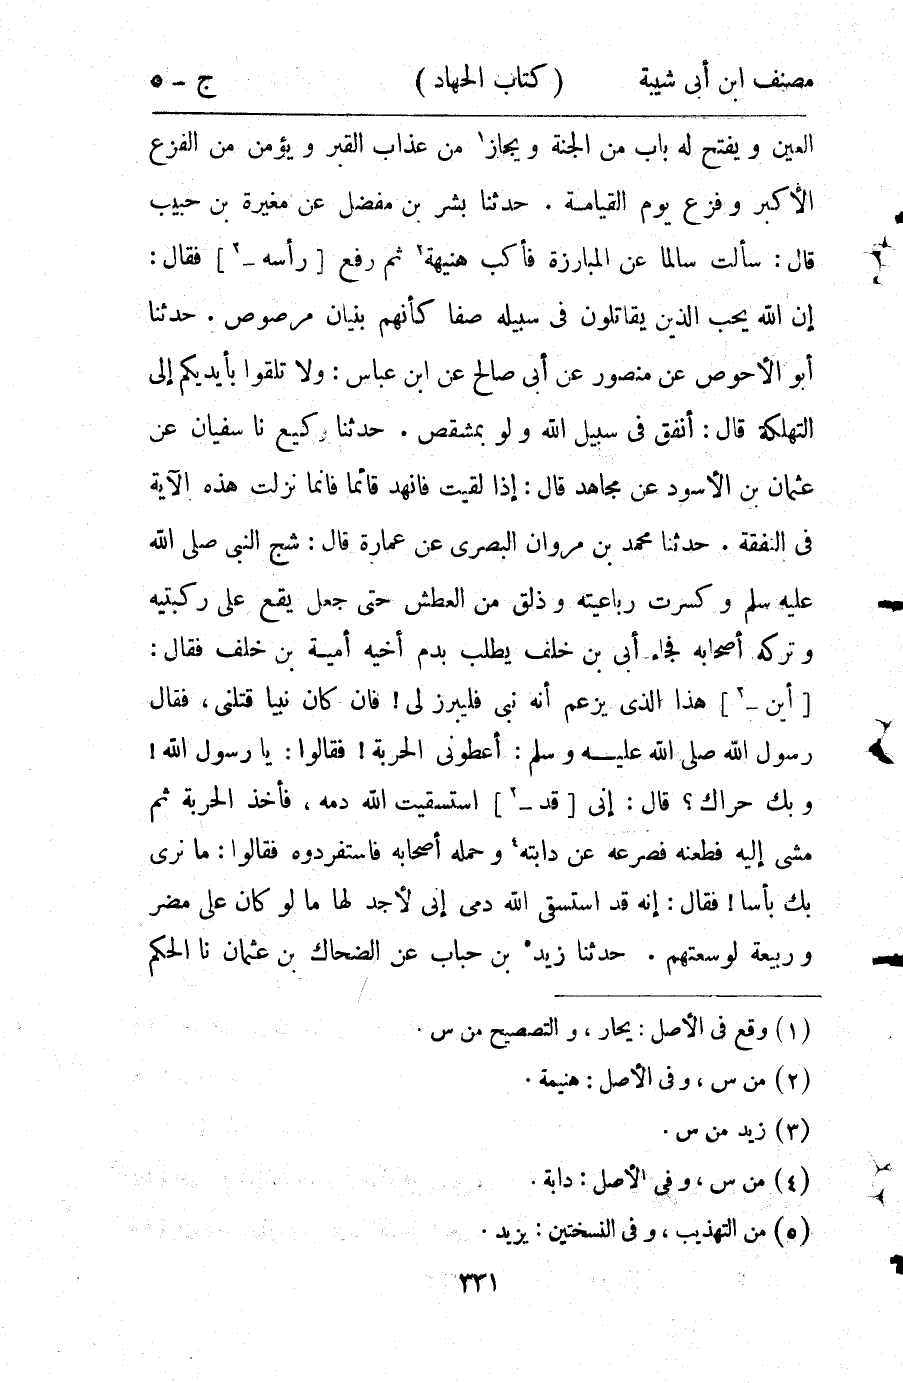 مصنف ابن أبى شيبة ( كتاب الجهاد ) ج - ٥
العين و يفتح له باب من الجنة و يجاز١ من عذاب القبر و يؤمن من الفزع
الأكبر و فزع يوم القيامة . حدثنا بشر بن مفضل عن مغيرة بن حبيب
قال : سألت سالما عن المبارزة فأكب هنيهة٢ ثم رفع [ رأسه ـ٣ ] فقال :
إن الله يحب الذين يقاتلون فى سبيله صفا كأنهم بنيان مرصوص . حدثنا
أبو الأحوص عن منصور عن أبى صالح عن ابن عباس : ولا تلقوا بأيديكم إلى
التهلكة قال : أنفق فى سبيل الله و لو بمشقص . حدثنا وكيع نا سفيان عن
عثمان بن الأسود عن مجاهد قال : إذا لقيت فانهد قائما فانما نزلت هذه الآية
فى النفقة . حدثنا محمد بن مروان البصرى عن عمارة قال : شج النبى صلى الله
عليه سلم و كسرت رباعيته و ذلق من العطش حتى جعل يقع على ركبتيه
و تركه أصحابه فجاء أبى بن خلف يطلب بدم أخيه أمية بن خلف فقال :
[ أين ـ٣ ] هذا الذى يزعم أنه نبى فليبرز لى ! فان كان نبيا قتلنى ، فقال
رسول الله صلى الله عليه و سلم : أعطونى الحربة ! فقالوا : يا رسول الله !
و بك حراك ؟ قال : إنى [ قد ـ٣ ] استسقيت الله دمه ، فأخذ الحربة ثم
مشى إليه فطعنه فصرعه عن دابته٤ و حمله أصحابه فاستفردوه فقالوا : ما نرى
بك بأسا ! فقال : إنه قد استسقى الله دمى إنى لأجد لها ما لو كان على مضر
و ربيعة لوسعتهم . حدثنا زيد٥ بن حباب عن الضحاك بن عثمان نا الحكم
(١) وقع فى الأصل : يحار ، و التصصيح من س .
(٢) من س ، و فى الأصل : هنيمة .
(٣) زيد من س .
(٤) من س ، و فى الأصل : دابة .
(٥) من التهذيب ، و فى النسختين : يزيد .
٣٣١